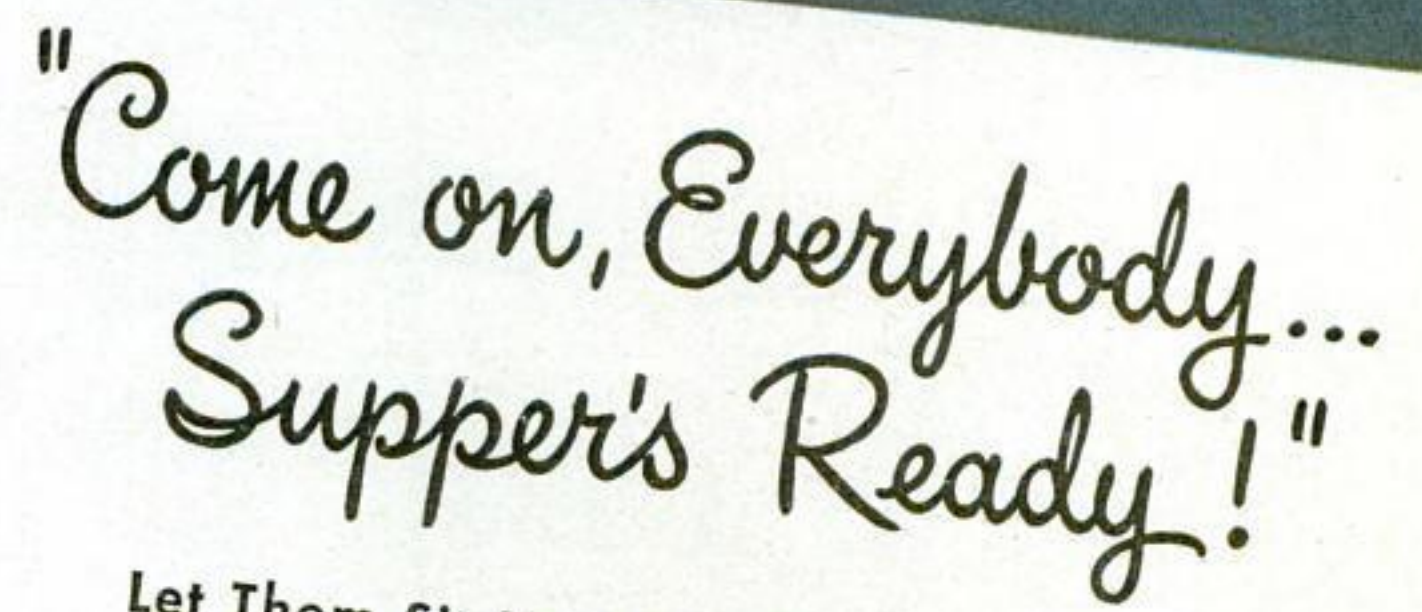 "Come on, Everybody...
Supper's Ready!"
Let Them